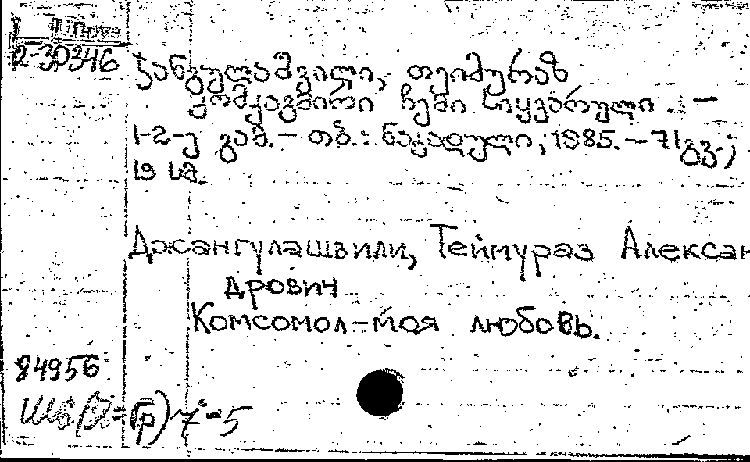 R-30346
ჯანგულაშვილი, თეიმურაზ
კომკავშირი ჩემი სიყვარული. —
1-2-ე გამ. — თბ.: ნაკადული, 1985. — 71 გვ.;
19 სმ.
Джангулашвили, Теймураз Алексан
дрович
Комсомол-моя любовь.
84956